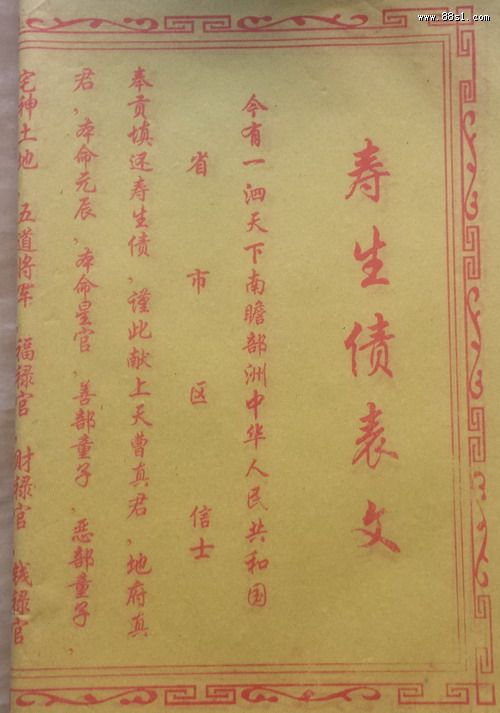 www.88s1.com
寿生债表文
今有一泗天下南瞻部洲中华人民共和国
省 市 区 信士
奉贡填还寿生债，谨此献上天曹真君，地府真
君，本命元辰，本命皇官，善部童子，恶部童子，
宅神土地 五道将军 福禄官 财禄官 钱禄官